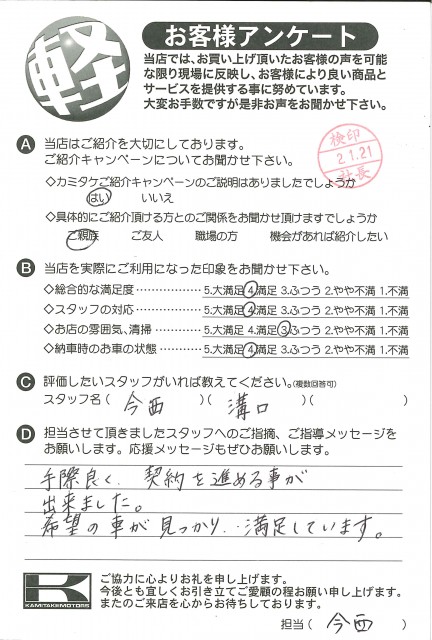 軽
お客様アンケート
当店では、お買い上げ頂いたお客様の声を可能
な限り現場に反映し、お客様により良い商品と
サービスを提供する事に努めています。
大変お手数ですが是非お声をお聞かせ下さい。
A 当店はご紹介を大切にしております。
ご紹介キャンペーンについてお聞かせ下さい。
検印
21.21
社長
◇カミタケご紹介キャンペーンのご説明はありましたでしょうか
はい いいえ
◇具体的にご紹介頂ける方とのご関係をお聞かせ頂けますでしょうか
ご親族 ご友人 職場の方 機会があれば紹介したい
B 当店を実際にご利用になった印象をお聞かせ下さい。
◇総合的な満足度……………… 5.大満足 4.満足 3.ふつう 2.やや不満 1.不満
◇スタッフの対応……………… 5.大満足 4.満足 3.ふつう 2.やや不満 1.不満
◇お店の雰囲気、清掃………… 5.大満足 4.満足 3.ふつう 2.やや不満 1.不満
◇納車時のお車の状態………… 5.大満足 4.満足 3.ふつう 2.やや不満 1.不満
C 評価したいスタッフがいれば教えてください。(複数回答可)
スタッフ名( 今西 )( 溝口 )( )
D 担当させて頂きましたスタッフへのご指摘、ご指導メッセージを
お願いします。応援メッセージもぜひお願いします。
手際良く、契約を進める事が
出来ました。
希望の車が見つかり、満足しています。
K
KAMITAKE MOTORS
ご協力に心よりお礼を申し上げます。
今後とも宜しくお引き立てご愛顧の程お願い申し上げます。
またのご来店を心からお待ちしております。
担当( 今西 )